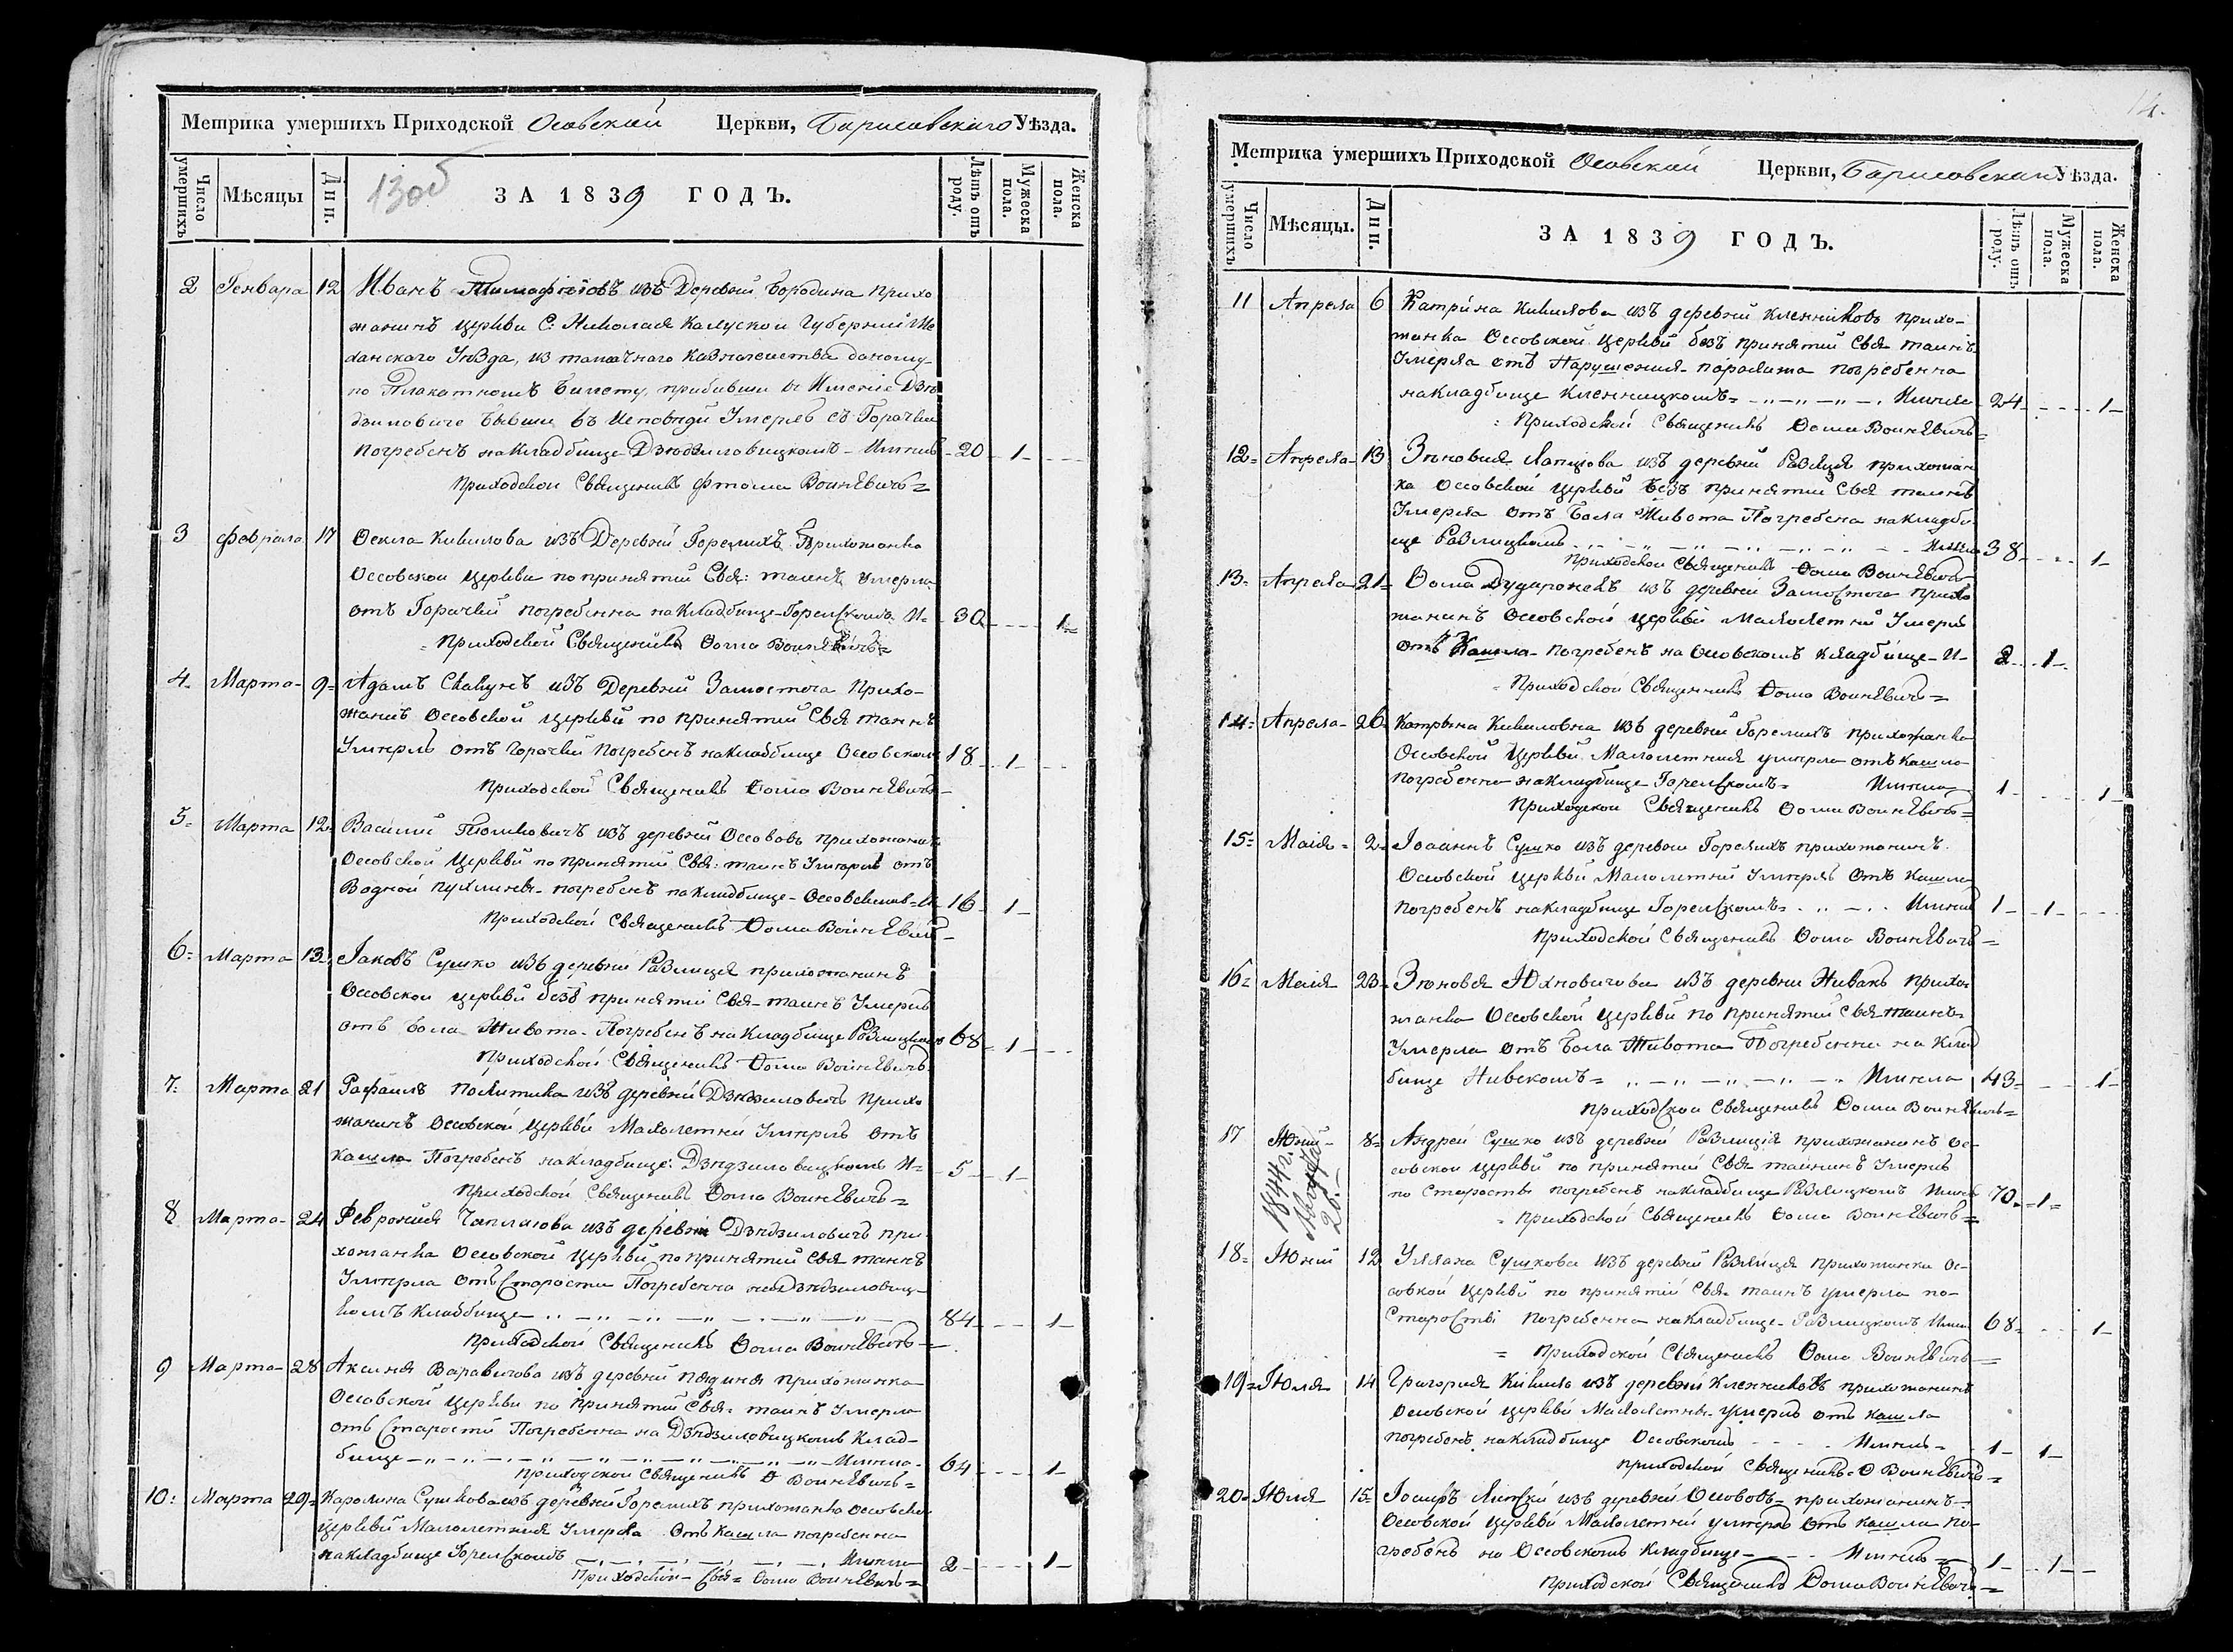 Метрика умершихъ Приходской Осовской Церкви, Борисовского Уѣзда.
Число умершихъ
Мѣсяцы
Дни.
130б
ЗА 1839 ГОДЪ.
Лѣтъ отъ роду.
Мужеска пола.
Женска пола.
2 Генвара 12 Иванъ Тимофѣовъ изъ Деревни Бородина прихо
жанинъ церкви С. Николая Калускои Губерніи Ме
ханскаго Уѣзда, из казначеиства данному
по Плакатномъ Билету, прибывши въ Имѣніе Дзѣ
дзиловиче бывши въ Исповѣди Умерлъ съ Горачки
погребенъ на кладбище Дзѣдзиловицкомъ - Имѣлъ - 20 - 1 -
Приходскои Священикъ Фтома Воинѣвичъ =
3 Феврала 17 Оекла Кивилова изъ Деревни Горелихъ Прихожанка
Оссовскои церкви по принятіи Свя: таинъ умерла
отъ Горачки погребенна на кладбище Горелскомъ И= - 30 - 1 -
= Приходской Священикъ Ѳома Воинѣвичъ =
4 - Марта - 9 = Адамъ Скакунъ изъ Деревни Замосточа Прихо-
жанинъ Оссовской церкви по принятіи Свя таинъ
Умерлъ отъ горачки Погребенъ на кладбище Оссовскомъ 18 - 1 -
Приходской Священикъ Ѳома Воинѣвичъ -
5 - Марта 12 - Василій Томковичъ изъ деревни Оссововъ прихожанинъ
Оссовской Церкви по принятіи Свя: таинъ Умерлъ отъ
Водной пухлины - погребенъ на кладбище - Оссовскомъ = И - 16 - 1 -
приходской Священикъ Ѳома Воинѣвичъ -
6 = Марта 13 = Іаковъ Сушко изъ деревни Разлиця прихожанинъ
Оссовской церкви безъ принятіи Свя - таинъ Умерлъ
отъ Бола Живота - Погребенъ на кладбище Разлицкомъ 68 - 1 -
Приходской Священикъ Ѳома Воинѣвичъ
7 = Марта 21 Рафаилъ Политика изъ деревни Дзѣдзиловичъ Прихо
жанинъ Осовской церкви Малолетни Умерлъ отъ
кашла Погребенъ на кладбище: Дзѣдзиловицкомъ И= - 5 - 1 -
Приходской Священикъ Ѳома Воинѣвичъ =
8 Марта - 24 Февронія Чаплахова изъ деревни Дзѣдзиловичъ при
хожанка Оссовской церкви по принятіи Свя таинъ
Умерла отъ Старости Погребенна на Дзѣдзиловиц-
комъ кладбище 84 - 1 -
приходской Священикъ Ѳома Воинѣвичъ =
9 Марта - 28 Аксиня Варавичова изъ деревни падиня прихожанка
Оссовской церкви по принятіи Свя: таинъ Умерла
отъ Старости Погребенна на Дзѣдзиловицкомъ Клад-
бище - Имѣла - 64 - 1 -
приходской Священикъ Ѳ Воинѣвичъ =
10: Марта 29 = Каролина Сушкова изъ деревни Горелихъ прихожанка Оссовской
церкви Малолетния Умерла отъ кашла погребенна
на кладбище Горелскомъ Имѣла 2 - 1 -
приходской - Свя = Ѳома Воинѣвичъ =
14.
Метрика умершихъ Приходской Осовской Церкви, Борисовскаго Уѣзда.
Число умершихъ
Мѣсяцы.
Дни.
ЗА 1839 ГОДЪ.
Лѣтъ отъ роду.
Мужеска пола.
Женска пола.
11 Апреля 6 Катрина Кивилова изъ деревни Кленниковъ прихо-
жанка Оссовской церкви безъ принятіи Свя таинъ
Умерла отъ Нарушения - паралижа погребенна
на кладбище Кленницкомъ = Имѣла 24 - 1 -
: Приходской Священикъ Ѳома Воинѣвичъ =
12 = Апреля - 13 Зѣновия Лапцова изъ деревни Разлиця прихожан
ка Оссовской церкви безъ принятіи Свя таинъ
Умерла отъ Бола Живота Погребена на кладби
ще Разлицкомъ Имѣла 38 - 1 -
Приходской Священикъ Ѳома Воинѣвичъ
13 = Апреля 21 = Ѳома Дударонекъ изъ деревни Замосточа прихо
жанинъ Оссовской церкви Малолетни Умерлъ
отъ Кашла - погребенъ на Оссовскомъ кладбище - И - 2 - 1 -
= Приходской Священникъ Ѳома Воинѣвичъ =
14 = Апреля - 26 Катрына Кивиловна изъ деревни Горелихъ прихожанка
Оссовской Церкви Малолетния умерла отъ кашла
погребенна на кладбище Горелскомъ = Имѣла 1 - 1 -
Приходской Священикъ Ѳома Воинѣвичъ =
15 = Маія = 2 = Іоаннъ Сушко изъ деревни Горелихъ прихожанинъ
Оссовской церкви Малолетни Умерлъ отъ кашла
погребенъ на кладбище Горелскомъ = Имѣлъ 1 - 1 -
приходской Священикъ Ѳома Воинѣвичъ =
16 = Маія 23 = Зѣновея Юхновичова изъ деревни Нивакъ прихо
жанка Оссовской церкви по принятіи Свя таинъ
Умерла отъ Бола Живота Погребенна на Клад
бище Нивскомъ = Имѣла 43 = 1 -
приходской Священикъ Ѳома Воинѣвичъ =
17 Юній - 8 = Андрей Сушко изъ деревни Разлиція прихожанинъ Ос-
совской церкви по принятіи Свя таинъ Умерлъ
по Старосты погребенъ на кладбище Разлицкомъ Имѣлъ 70 - 1 =
= приходской Священикъ Ѳома Воинѣвичъ =
1844
28.
18 = Юній 12 Уллана Сушкова изъ деревни Разлиця прихожанка Ос-
совкой церкви по принятіи Свя таинъ умерла по-
Старости погребенна на кладбище - Разлицкомъ Имѣла 68 = 1 -
= приходской Священикъ Ѳома Воинѣвичъ =
19 = Юля 14 Григория Кивилъ изъ деревни Кленниковъ прихожанинъ
Оссовской церкви Малолетны - умерлъ отъ кашла
погребенъ на кладбище Оссовскомъ - Имѣлъ - 1 - 1 -
приходской Священикъ Ѳ Воинѣвичъ =
20 = Юля 15 = Іосифъ Лисскій изъ деревни Оссововъ - прихожанинъ -
Оссовской церкви Малолетни умерлъ отъ кашла по-
гребенъ на Оссовскомъ кладбище - Имѣлъ = 1 - 1 -
приходской Священикъ Ѳома Воинѣвичъ =